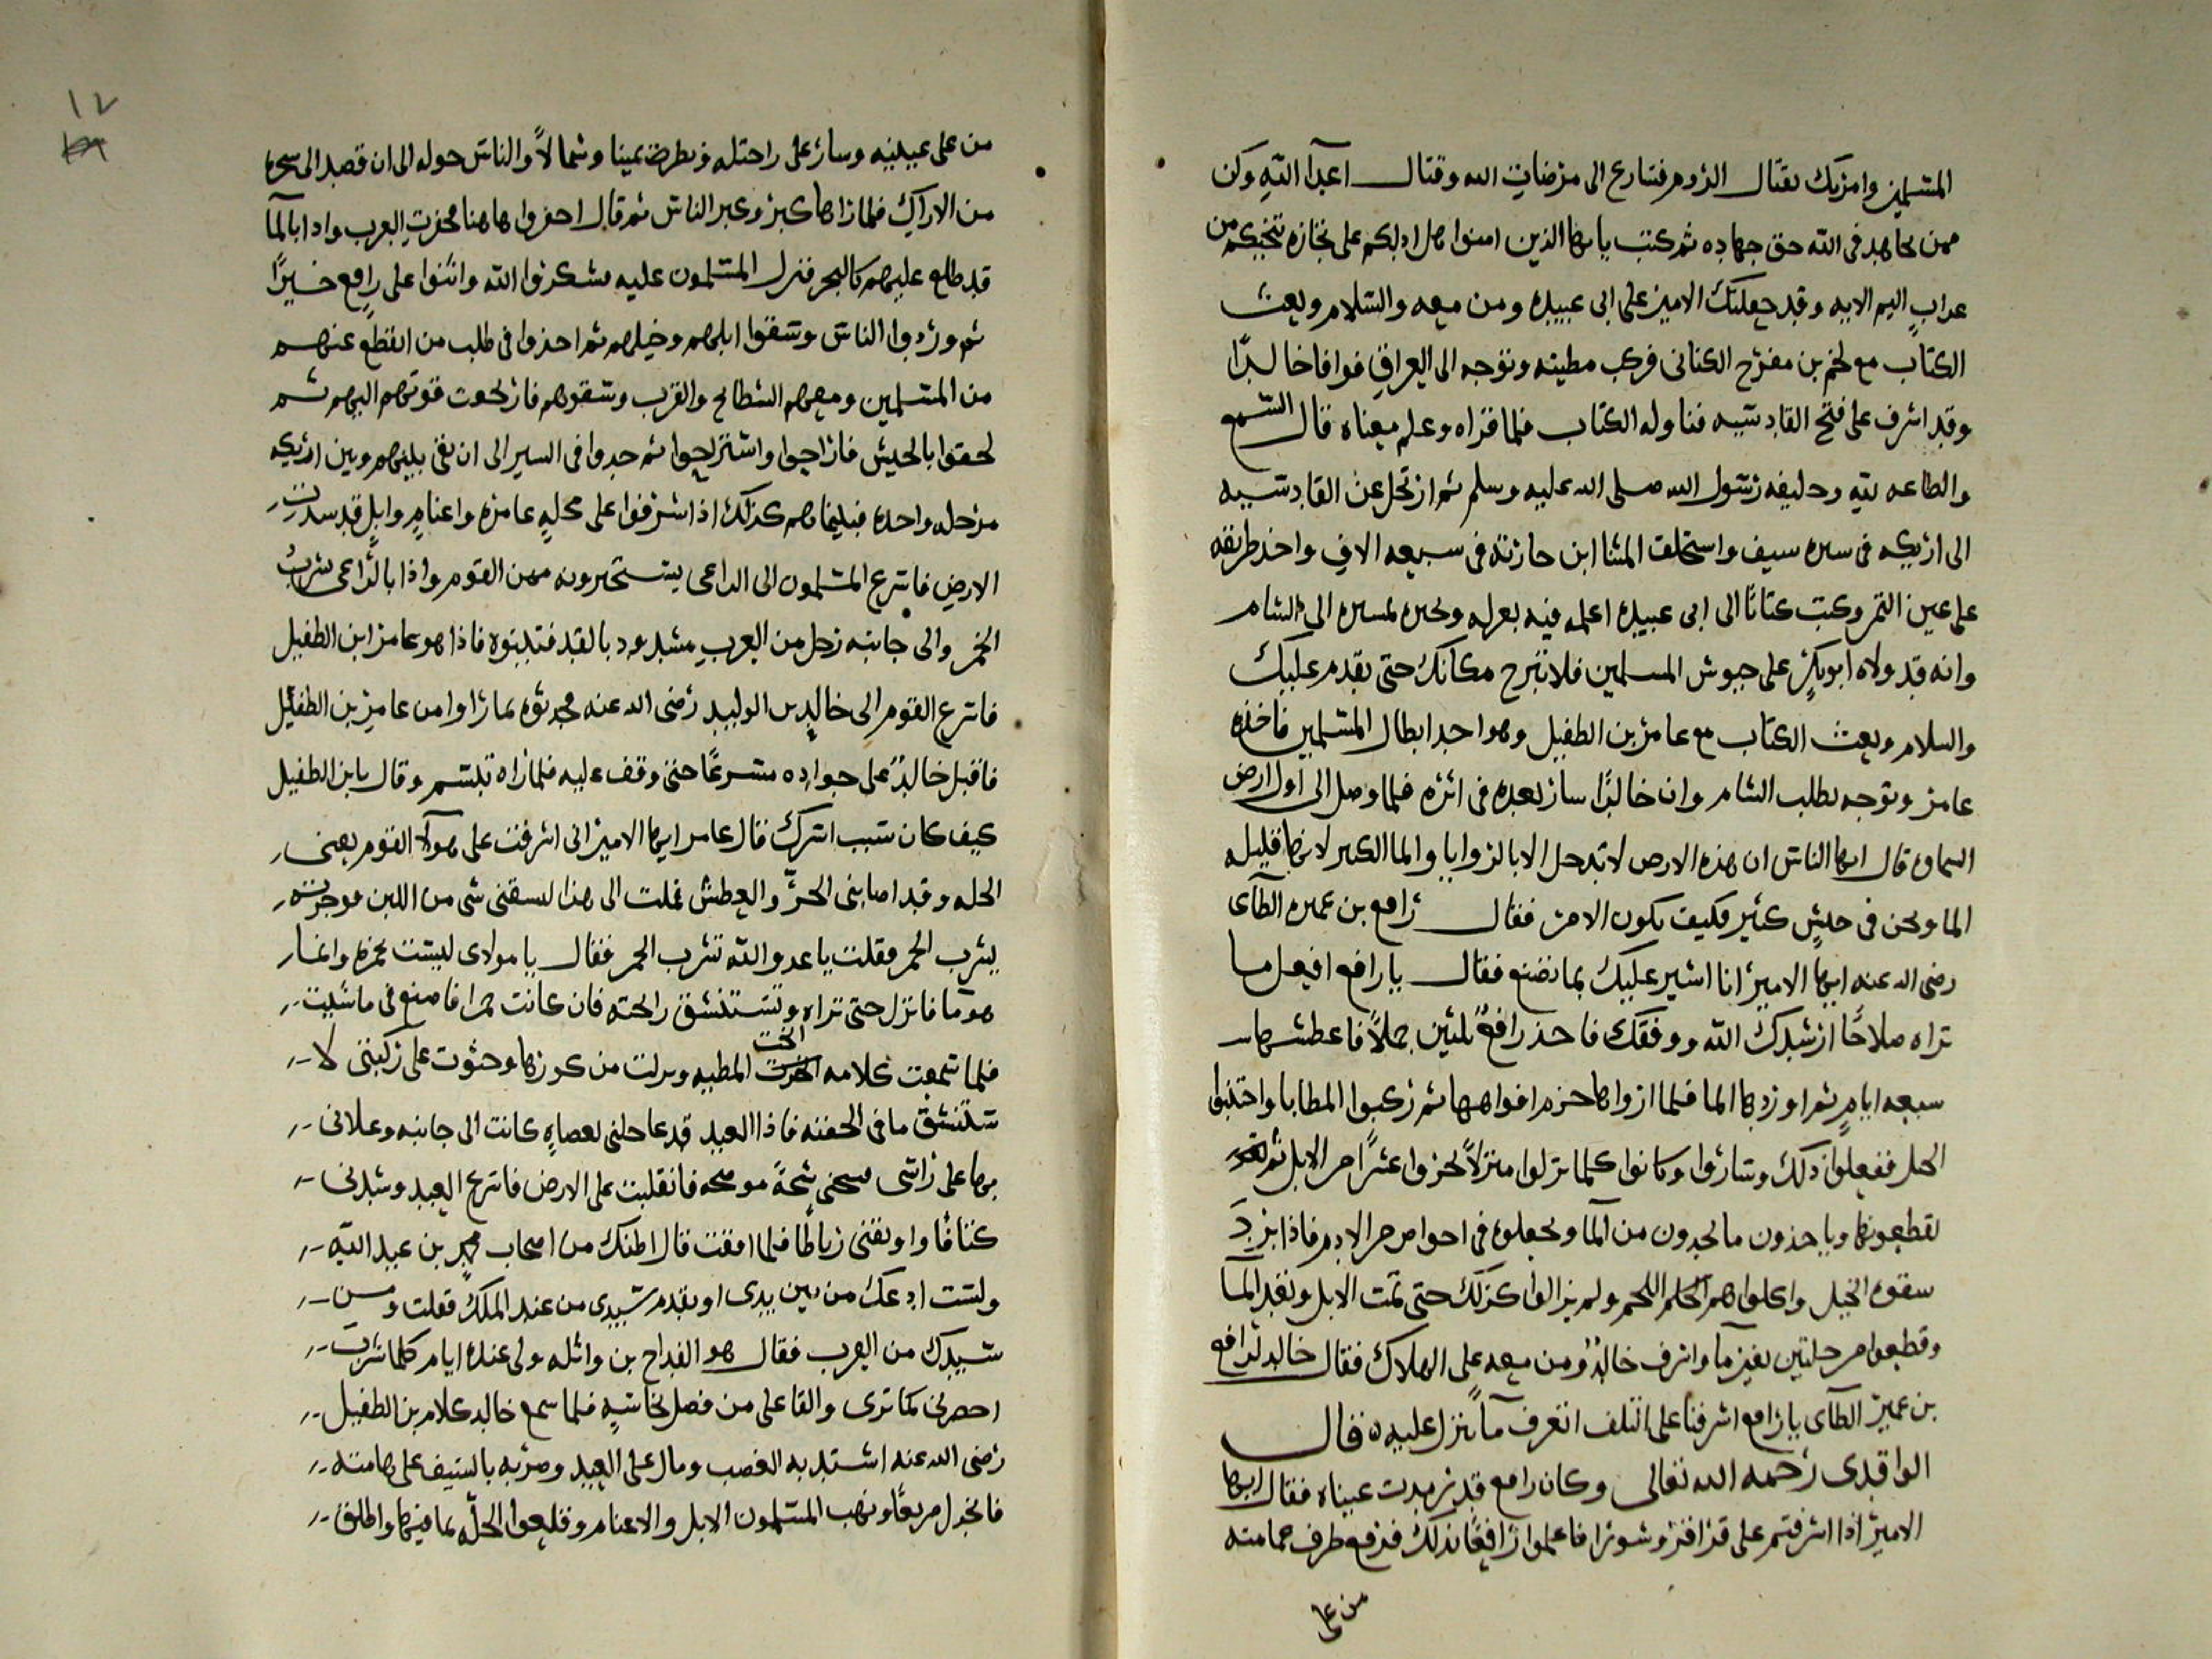 المسلمين وامرتك بقتال الروم فسارع الى مرضات الله وقتال اعدآ الله وكن
ممن يجاهد فى الله حق جهاده ثم كتب يا ايها الذين امنوا هل ادلكم على تجاره تنجيكم من
عذاب اليم الايه وقد جعلتك الامير على ابى عبيده ومن معه والسلام وبعث
الكتاب مع نجم بن مفرح الكنانى فركب مطيته وتوجه الى العراق فوافا خالدًا
وقد اشرف على فتح القادسيه فناوله الكتاب فلما قراه وعلم معناه قال السمع
والطاعه لله وخليفه رسول الله صلى الله عليه وسلم ثم ارتحل عن القادسيه
الى اريكه فى سيره سيف واستخلف المثنا ابن حارثه فى سبعه الاف واخذ طريقه
على عين التمر وكتب كتابًا الى ابى عبيده اعلمه فيه بعزله ويخبره بمسيره الى الشام
وانه قد ولاه ابو بكرٍ على جيوش المسلمين فلا تبرح مكانك حتى يقدم عليك
والسلام وبعث الكتاب مع عامر بن الطفيل وهو احد ابطال المسلمين فاخذه
عامر وتوجه يطلب الشام وان خالدًا سار بعده فى اثره فلما وصل الى اول ارض
السماوه قال ايها الناس ان هذه الارض لا تدخل الا بالروايا والما الكثير لانها قليله
الما ونحن فى جيشٍ كثير فكيف يكون الامر فقال رافع بن عميره الطآى
رضى الله عنه ايها الامير انا اشير عليك بما تصنع فقال يا رافع افعل ما
تراه صلاحًا ارشدك الله ووفقك فاخذ رافعٌ ثلثين جملاً فاعطشها
سبعه ايامٍ ثم اوردها الما فلما ارواها حزم افواهها ثم ركبوا المطايا واجتنبوا
الخيل ففعلوا ذلك وساروا وكانوا كلما نزلوا منزلاً نحروا عشرًا من الابل ثم
يقطعونها وياخذون ما يجدون من المآ ويجعلوه فى احواض من الادم فاذا برد
سقوه الخيل واكلوا هم اللحم ولم يزالوا كذلك حتى تمت الابل ونفد المآ
وقطعوا مرحلتين بغير مآ واشرف خالدٌ ومن معه على الهلاك فقال خالد لرافع
بن عمير الطآى يا رافع اشرفنا على التلف اتعرف مآً ننزل عليه ه قال
الواقدى رحمه الله تعالى وكان رافع قد رمدت عيناه فقال ايها
الامير اذا اشرفتم على قراقر وسوى فاعلموا رافعًا بذلك فرفع طرف عمامته
من على
١٧
من على عينيه وسار على راحتله ويطرف يمينا وشمالاً والناس حوله الى ان قصد الى شجره
من الاراك فلما راها كبر وكبر الناس ثم قال احفروا هاهنا فحفرت العرب واذا بالمآ
قد طلع عليهم كالبحر فنزل المسلمون عليه وشكروا الله واثنوا على رافع خيرًا
ثم وردوا الناس وسقوا ابلهم وخيلهم ثم اخذوا فى طلب من انقطع عنهم
من المسلمين ومعهم السطايح والقرب وسقوهم فارتجعت قوتهم اليهم ثم
لحقوا بالجيش فاراحوا واستراحوا ثم جدوا فى السير الى ان بقى بينهم وبين اريكه
مرحله واحده فبينما هم كذلك اذ اشرفوا على محلهٍ عامره واغنامٍ وابلٍ قد سدت
الارض فاسرع المسلمون الى الراعى يستخبرونه ممن القوم واذا بالراعى يشربُ
الخمر والى جانبه رجل من العرب مشدود بالقد فتبينوه فاذا هو عامر ابن الطفيل
فاسرع القوم الى خالد بن الوليد رضى الله عنه فحدثوه بما راوا من عامر بن الطفيل
فاقبل خالدٌ على جواده مسرعًا حتى وقف عليه فلما راه تبسم وقال يا بن الطفيل
كيف كان سبب اسرك فقال عامر ايها الامير انى اشرفت على هولآ القوم بعنى
الحله وقد اصابنى الحرُّ والعطش فملت الى هذا ليسقنى شى من اللبن فوجدته
يشرب الخمر فقلت يا عدو الله تشرب الخمر فقال يا مولاى ليست بخمره وانما
هو مآ فانزل حتى تراه وتستنشق رايحته فان كانت خمرا فاصنع فى ما شيت
فلما سمعت كلامه انخت المطيه ونزلت من كورها وحثوت على ركبتى لا
ستنشق ما فى الجفنه فاذا العبد قد عاجلنى بعصاهٍ كانت الى جانبه وعلانى
بها على راسى فشجنى شجةً موضحه فانقلبت على الارض فاسرع العبد وشدنى
كتافًا واوثقنى رباطًا فلما افقت قال اظنك من اصحاب محمد بن عبد الله
ولست ادعك من بين يدى او يقدم سيدى من عند الملك فقلت ومن
سيدك من العرب فقال هو القداح بن واثله ولى عنده ايام كلما شرب
احضرنى كما ترى والقا على من فضل كاسهِ فلما سمع خالد كلام بن الطفيل
رضى الله عنه اشتد به الغضب ومال على العبد وضربه بالسيف على هامته
فانجدل صريعًا ونهب المسلمون الابل والاغنام وقلعوا الحلّه بما فيها واطلق